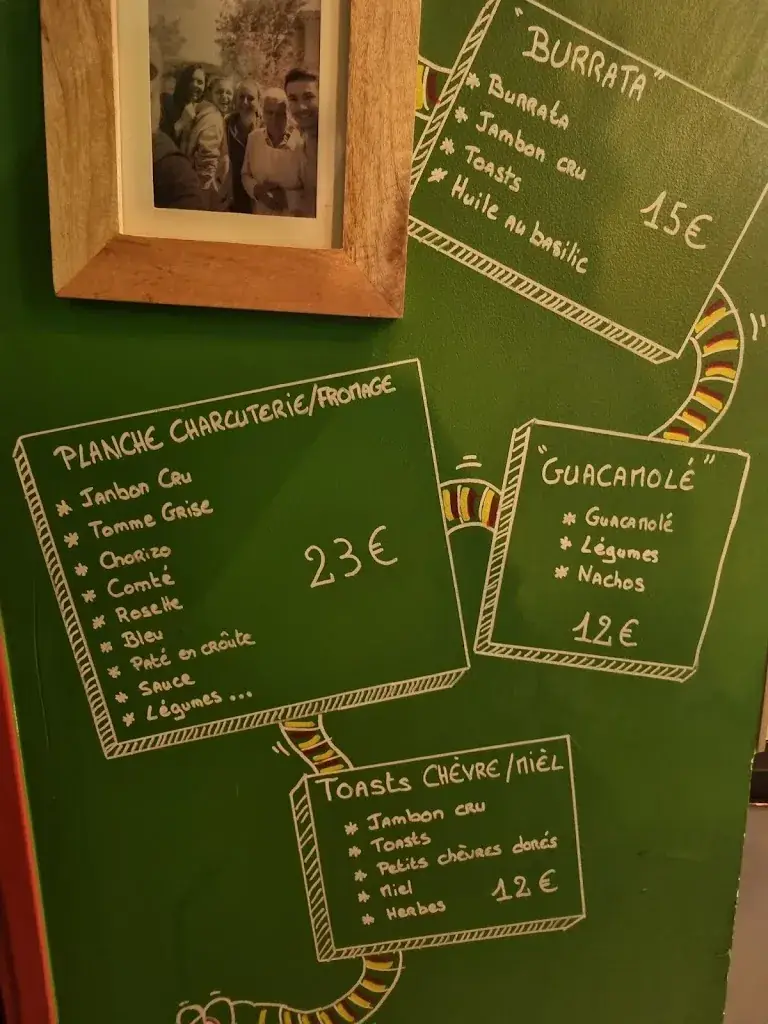 "BURRATA"
* BURRATA
* JAMBON CRU
* TOASTS
* HUILE AU BASILIC
15€
PLANCHE CHARCUTERIE/FROMAGE
* JAMBON CRU
* TOMME GRISE
* CHORIZO
* COMTÉ
* ROSETTE
* BLEU
* PATÉ EN CROÛTE
* SAUCE
* LÉGUMES ...
23€
"GUACAMOLÉ"
* GUACAMOLÉ
* LÉGUMES
* NACHOS
12€
TOASTS CHÈVRE/MIÈL
* JAMBON CRU
* TOASTS
* PETITS CHÈVRES DORÉS
* MIEL
* HERBES
12€